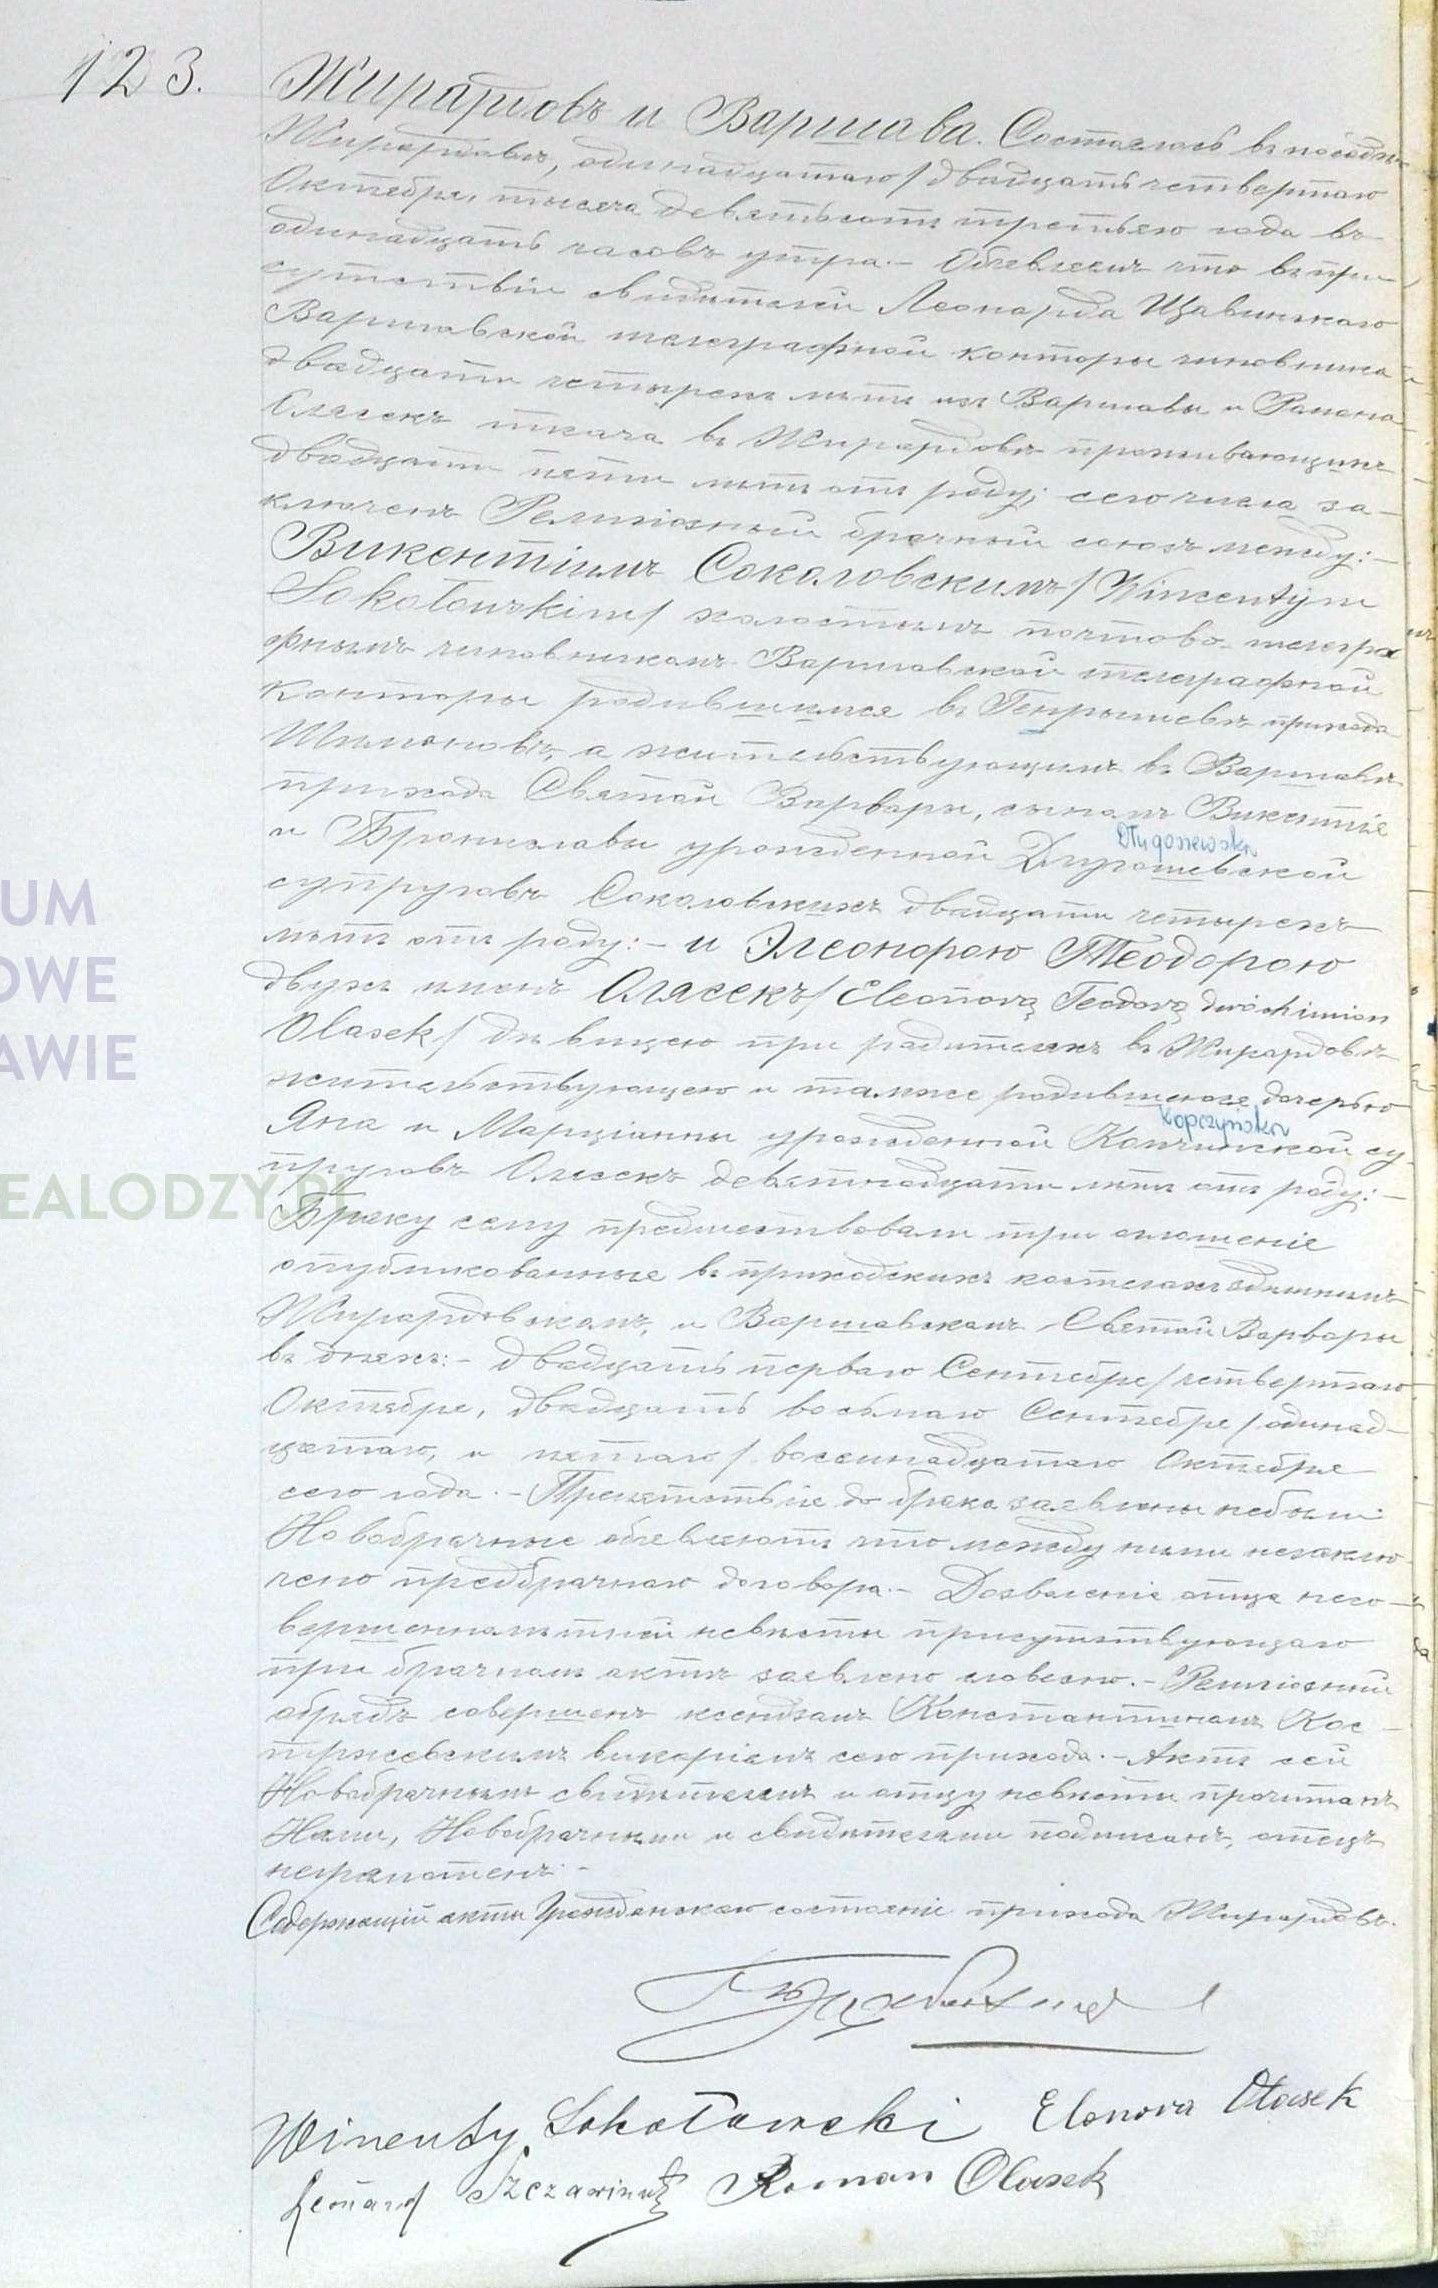 123.
Жирардовъ и Варшава. Состоялось въ посадѣ
Жирардовѣ, одинадцатаго / двадцать четвертаго
Октября, тысяча девятьсотъ третьяго года въ
одинадцать часовъ утра. – Объявляемъ что въ при-
сутствіи свидѣтелей Леонарда Щавинскаго
Варшавской телеграфной конторы чиновника
двадцати четырехъ лѣтъ изъ Варшавы и Романа
Олясекъ ткача въ Жирардовѣ проживающихъ
двадцати пяти лѣтъ отъ роду; сего числа за-
ключенъ Религіозный брачный союзъ между: –
Викентіимъ Соколовскимъ / Wincentym
Sokołowskim / холостымъ почтово-телегра
фнымъ чиновникомъ Варшавской телеграфной
конторы родившимся въ прихода
а жительствующимъ въ Варшавѣ
прихода Святой Варвары, сыномъ Викентія
Długoszewska
и Брониславы урожденной Длугошевской
супруговъ Соколовскихъ двадцати четырехъ
лѣтъ отъ роду: – и Элеонорою Теодорою
двухъ именъ Олясекъ / Eleonorą Teodorą dwóch imion
Olasek / дѣвицею при родителяхъ въ Жирардовѣ
жительствующею и тамже родившеюся дочерью
Kopczyńska
Яна и Марціанны урожденной Копчинской су-
пруговъ Олясекъ девятнадцати лѣтъ отъ роду: –
Браку сему предшествовали три оглашенія
опубликованныя въ приходскихъ костелахъ здѣшнимъ
Жирардовскомъ, и Варшавскомъ Святой Варвары
въ дняхъ: – двадцать перваго Сентября / четвертаго
Октября, двадцать восьмаго Сентября / одинад-
цатаго, и пятаго / восемнадцатаго Октября
сего года. – Препятствіе до брака заявлены небыли
Новобрачные объявляютъ что между ними незаклю
чено предбрачнаго договора. – Дозволеніе отца несо-
вершеннолѣтней невѣсты присутствующаго
при брачномъ актѣ заявлено словесно. – Религіозный
обрядъ совершенъ ксендзомъ Константиномъ Кос-
тржевскимъ викаріемъ сего прихода. – Актъ сей
Новобрачнымъ свидѣтелямъ и отцу невѣсты прочитанъ
Нами, Новобрачными и свидѣтелями подписанъ, отецъ
неграмотенъ. –
Содержащій акты Гражданскаго состоянія прихода Жирардовъ.
Wincenty Sokołowski Elenora Olasek
Leonard Szczawiński Roman Olasek
UM
OWE
AWIE
EALODZY.PL